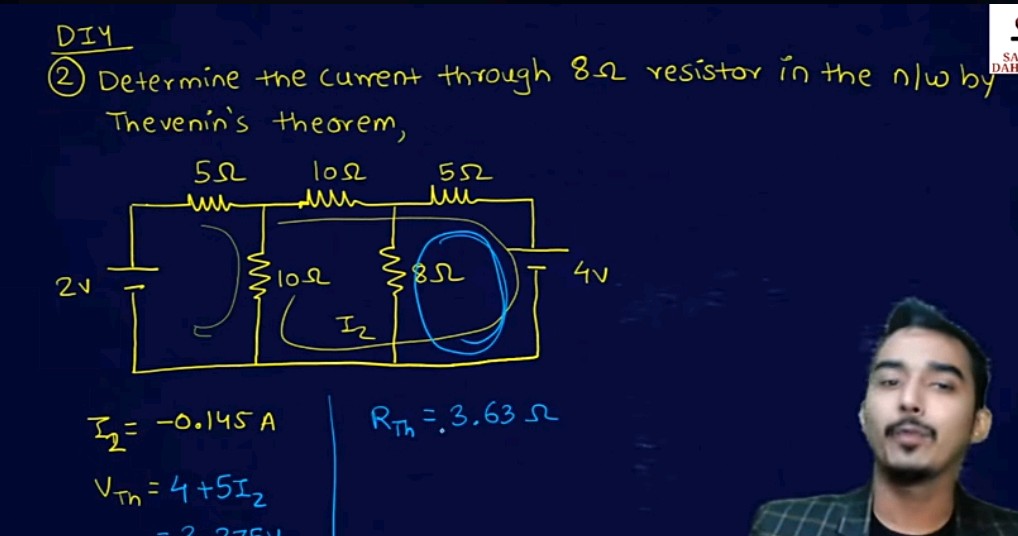 DIY
② Determine the current through 8Ω resistor in the n/w by
Thevenin's theorem,
5Ω 10Ω 5Ω
2v 10Ω 8Ω 4v
I₂
I₂ = -0.145 A
R_Th = 3.63 Ω
V_Th = 4+5I₂
SA
DAH